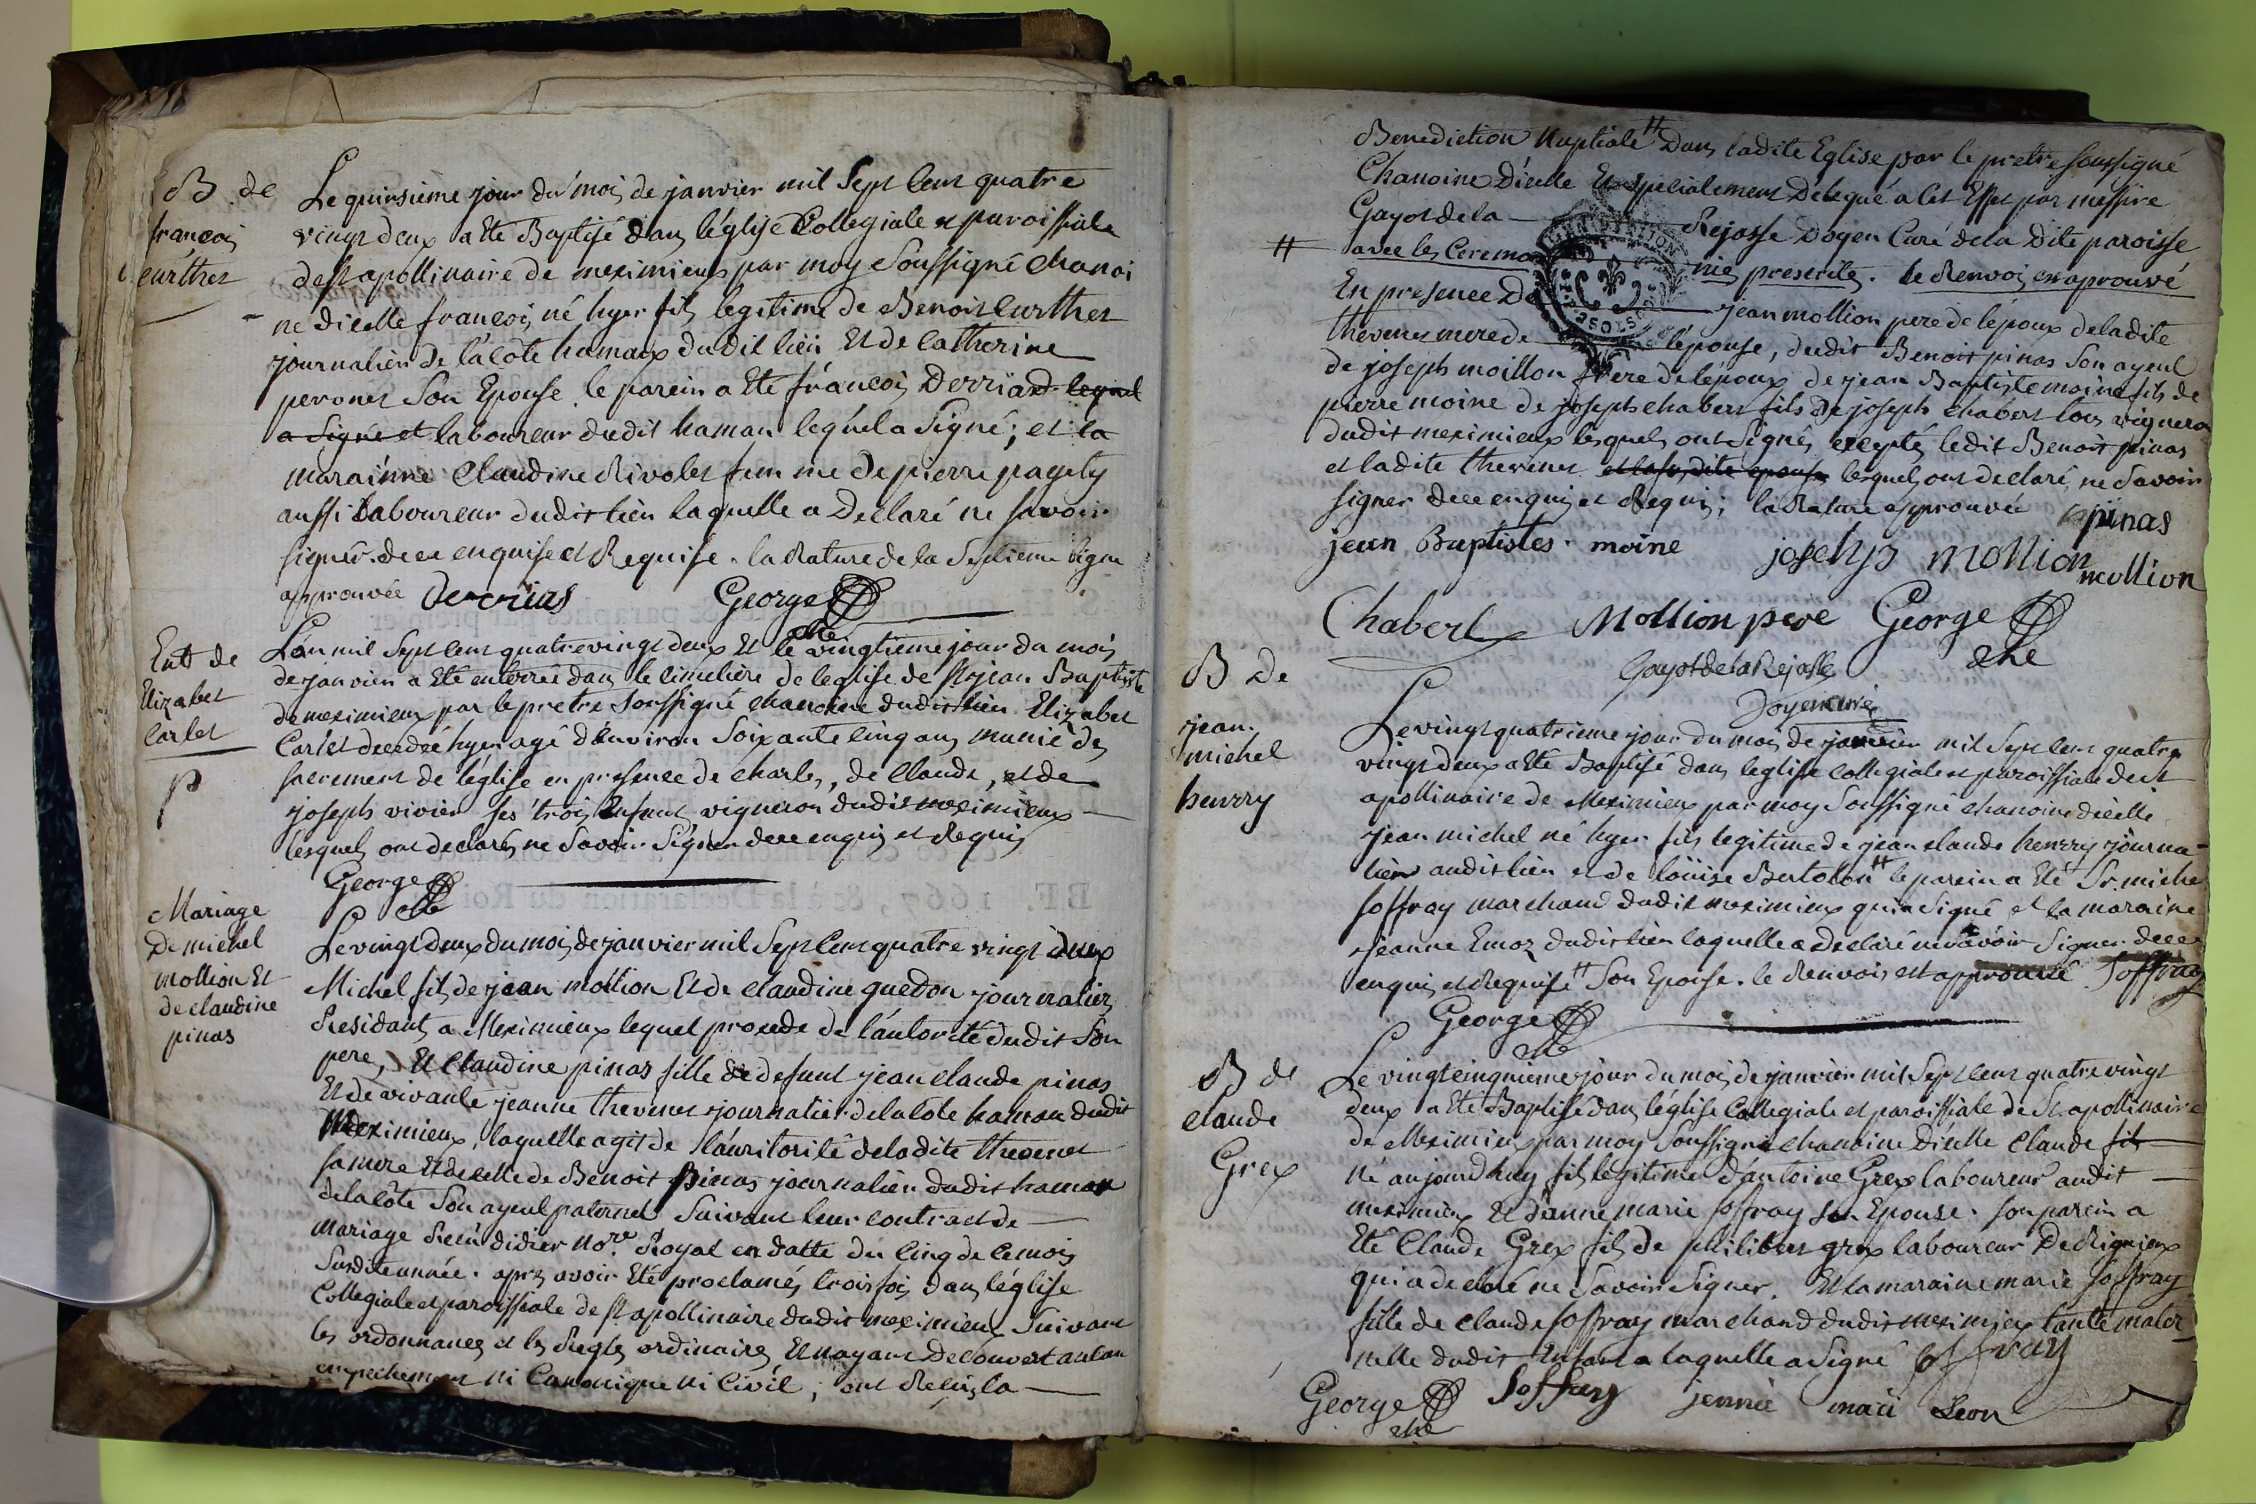 B. de
françois
curthet
Le quinsieme jour du mois de janvier mil sept cent quatre
vingt deux a Eté Baptisé dans léglise Collegiale et paroissiale
de st apollinaire de meximieux par moy soussigné chanoi
ne dicelle françois né hyer fils legitime de Benoit Curthet
journalier de la côte hamaux dudit lieu Et de Catherine
peronet son Epouse. le parein a Eté françois Derriad lequel
a signé et laboureur dudit hamau lequel a signé; et la
marainne Claudine Rivolet femme de pierre pagety
aussi Laboureur dudit lieu laquelle a Declaré ne savoir
signér. de ce enquise et Requise. la Rature de la septieme ligne
approuvée Derrias George
che
Ent de
Elizabet
Carlet
p
Lan mil sept cent quatrevingt deux Et le vingtieme jour du mois
de janvier a Eté enterrée dans le cimetière de leglise de st jean Baptiste
de meximieux par le pretre soussigné chanoine dudit lieu Elizabet
Carlet decedée hyer agé dénviron soixante cinq ans munie des
sacrement de léglise en presence de charles, de claude, et de
joseph vivier ses trois Enfant vigneron dudit meximieux
lesquels ont declarés ne savoir signer de ce enquis et Requis
George
che
Mariage
De michel
mollion Et
de claudine
pinas
Le vingt deux du mois de janvier mil sept Cent quatre vingt deux
Michel fils de jean mollion Et de claudine guedon journalier
Residants a Meximieux lequel procede de láutorité dudit son
pere, Et Claudine pinas fille de defunt jean claude pinas
Et de vivante jeanne thevenet journalier de la côte hamau dudit
Meximieux, laquelle agit de láuritorité de ladite thevenet
sa mere Et de celle de Benoit pinas journalier dudit hamau
de la côte son ayeul paternel suivant leur contract de
mariage Recu didier nore. Royal en datte du cinq de ce mois
susdite année. après avoir Eté proclamés trois fois dans léglise
Collegiale et paroissiale de st apollinaire dudit meximieux suivant
les ordonnances et les Regles ordinaires Et nayant decouvert aucun
empechement ni Canonique ni Civil; ont Recus la
Benediction Nuptiale # Dans ladite Eglise par le pretre soussigné
Chanoine Dicelle Et specialement Délegué a cet Effet par messire
Gayot de la Rejasse Doyen Curé de la Dite paroisse
# avec les Ceremonie prescrite. le Renvois est aprouvé
En presence De jean mollion pere de lépoux de la dite
thevenet mere de lépouse, dudit Benoit pinas son ayeul
de joseph moillon frere de lépoux de jean Baptiste moine fils de
pierre moine de joseph chabert fils de joseph chabert tous vigneron
dudit meximieux lesquels ont signés excepté ledit Benoit pinas
et ladite thevenet et la susdite epouse lesquels ont declaré ne savoir
signer de ce enquis et Requis; la Rature approuvée pinas
jean Baptistes. moine josehp mollion
mollion
Chabert Mollion pere George
che
Gayot de la Rejasse
Doyen curé
B De
jean.
michel
henrry
Le vingt quatrieme jour du mois de janvier mil sept cent quatre
vingt deux a Eté Baptisé dans leglise collegiale et paroissiale de st
apollinaire de Meximieux par moy soussigné chanoine dicelle
jean michel né hyer fils legitime de jean claude henrry journa-
lier audit lieu et de loüise Bertolon # le parein a Eté Sr. michel
soffray marchand dudit meximieux qui a signé et la maraine
jeanne Emoz dudit lieu laquelle a declaré ne savoir signer. de ce
enquis et Requise # son Epouse. le Renvois est approuvé Soffray
George
che
B de
claude
Grex
Le vingt cinquieme jour du mois de janvier mil sept cent quatre vingt
deux a Eté Baptisé dans léglise Collegiale et paroissiale de St. apollinaire
de Meximieux par moy soussigné chanoine Dicelle Claude fils
né aujourdhuy fils légitime dantoine Grex laboureur audit
meximieux Et dánne marie soffray son Epouse. son parein a
Eté Claude Grex fils de philibert grex laboureur De Rignieux
qui a declaré ne savoir signer. Et la maraine marie soffray
fille de claude soffray marchand dudit meximieux tante mater
nelle dudit Enfant a laquelle a signé soffray
George Soffray jennie mari Leon
che